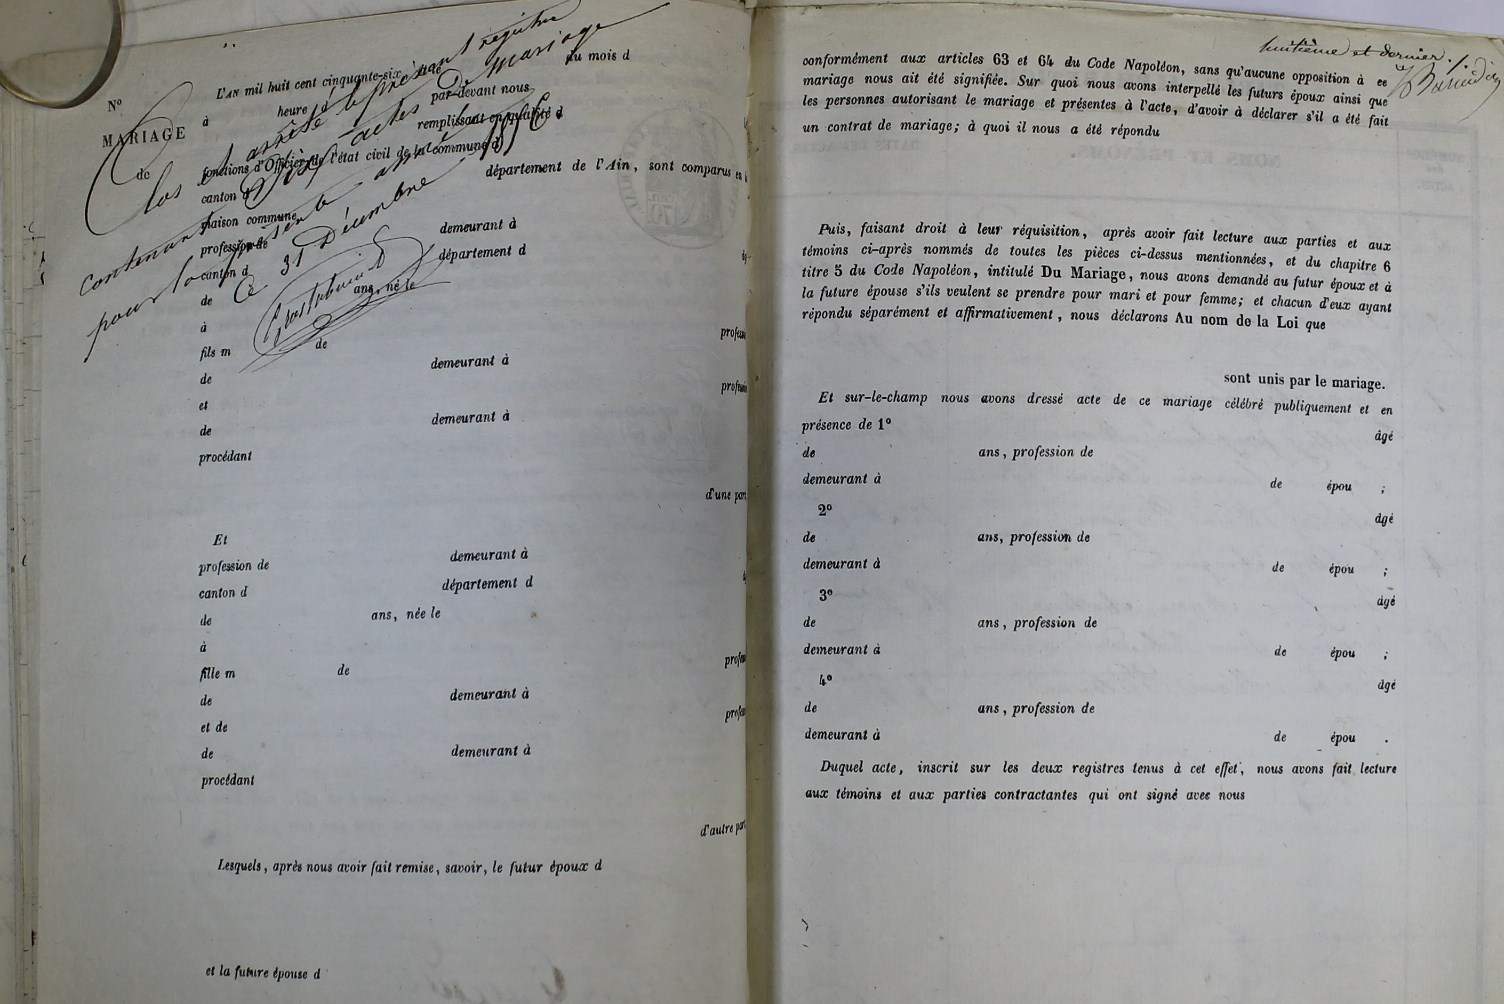 Clos et arrêté le présent registre
contenant dix actes De mariage
pour la présente année 1856
Ce 31 Décembre
N°
MARIAGE
de
L'AN mil huit cent cinquante-six le du mois d
à heure d par-devant nous
remplissant en qualité d
fonctions d'Officier de l'état civil de la commune d
canton d département de l'Ain, sont comparus en
maison commune
profession de demeurant à
canton d département d
de ans, né le
à
fils m de profess
de demeurant à
et profession
de demeurant à
procédant
d'une part
Et
profession de demeurant à
canton d département d
de ans, née le
à
fille m de profess
de demeurant à
et de profess
de demeurant à
procédant
d'autre part
Lesquels, après nous avoir fait remise, savoir, le futur époux d
et la future épouse d
huitième et dernier.
conformément aux articles 63 et 64 du Code Napoléon, sans qu'aucune opposition à ce
mariage nous ait été signifiée. Sur quoi nous avons interpellé les futurs époux ainsi que
les personnes autorisant le mariage et présentes à l'acte, d'avoir à déclarer s'il a été fait
un contrat de mariage; à quoi il nous a été répondu
Puis, faisant droit à leur réquisition, après avoir fait lecture aux parties et aux
témoins ci-après nommés de toutes les pièces ci-dessus mentionnées, et du chapitre 6
titre 5 du Code Napoléon, intitulé Du Mariage, nous avons demandé au futur époux et à
la future épouse s'ils veulent se prendre pour mari et pour femme; et chacun d'eux ayant
répondu séparément et affirmativement, nous déclarons Au nom de la Loi que
sont unis par le mariage.
Et sur-le-champ nous avons dressé acte de ce mariage célébré publiquement et en
présence de 1° âgé
de ans, profession de
demeurant à de épou ;
2° âgé
de ans, profession de
demeurant à de épou ;
3° âgé
de ans, profession de
demeurant à de épou ;
4° âgé
de ans, profession de
demeurant à de épou .
Duquel acte, inscrit sur les deux registres tenus à cet effet, nous avons fait lecture
aux témoins et aux parties contractantes qui ont signé avec nous